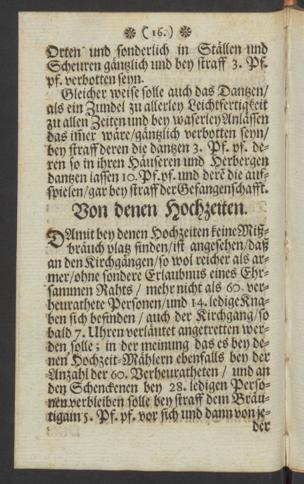 ( 16. )
Orten und sonderlich in Ställen und
Scheuren gäntzlich und bey straff 3. Pf.
pf. verbotten seyn.
Gleicher weise solle auch das Dantzen/
als ein Zundel zu allerley Leichtfertigkeit
zu allen Zeiten und bey waserley Anlässen
das im̃er wäre/gäntzlich verbotten seyn/
bey straff deren die dantzen 3. Pf. pf. de-
ren so in ihren Häuseren und Herbergen
dantzen lassen 10. Pf. pf. und derẽ die auff-
spielen/gar bey straff der Gefangenschafft.
Von denen Hochzeiten.
DAmit bey denen Hochzeiten keine Miß-
bräuch platz finden/ist angesehen/daß
an den Kirchgängen/so wol reicher als ar-
mer/ohne sondere Erlaubnus eines Ehr-
sammen Rahts / mehr nicht als 60. ver-
heurathete Personen/und 14. ledige Kna-
ben sich befinden / auch der Kirchgang/so
bald 7. Uhren verläutet angetretten wer-
den solle; in der meinung das es bey de-
nen Hochzeit-Mählern ebenfalls bey der
Anzahl der 60. Verheuratheten / und an
den Schenckenen bey 28. ledigen Perso-
nen verbleiben solle bey straff dem Bräu-
tigam 5. Pf. pf. vor sich und dann von je-
der